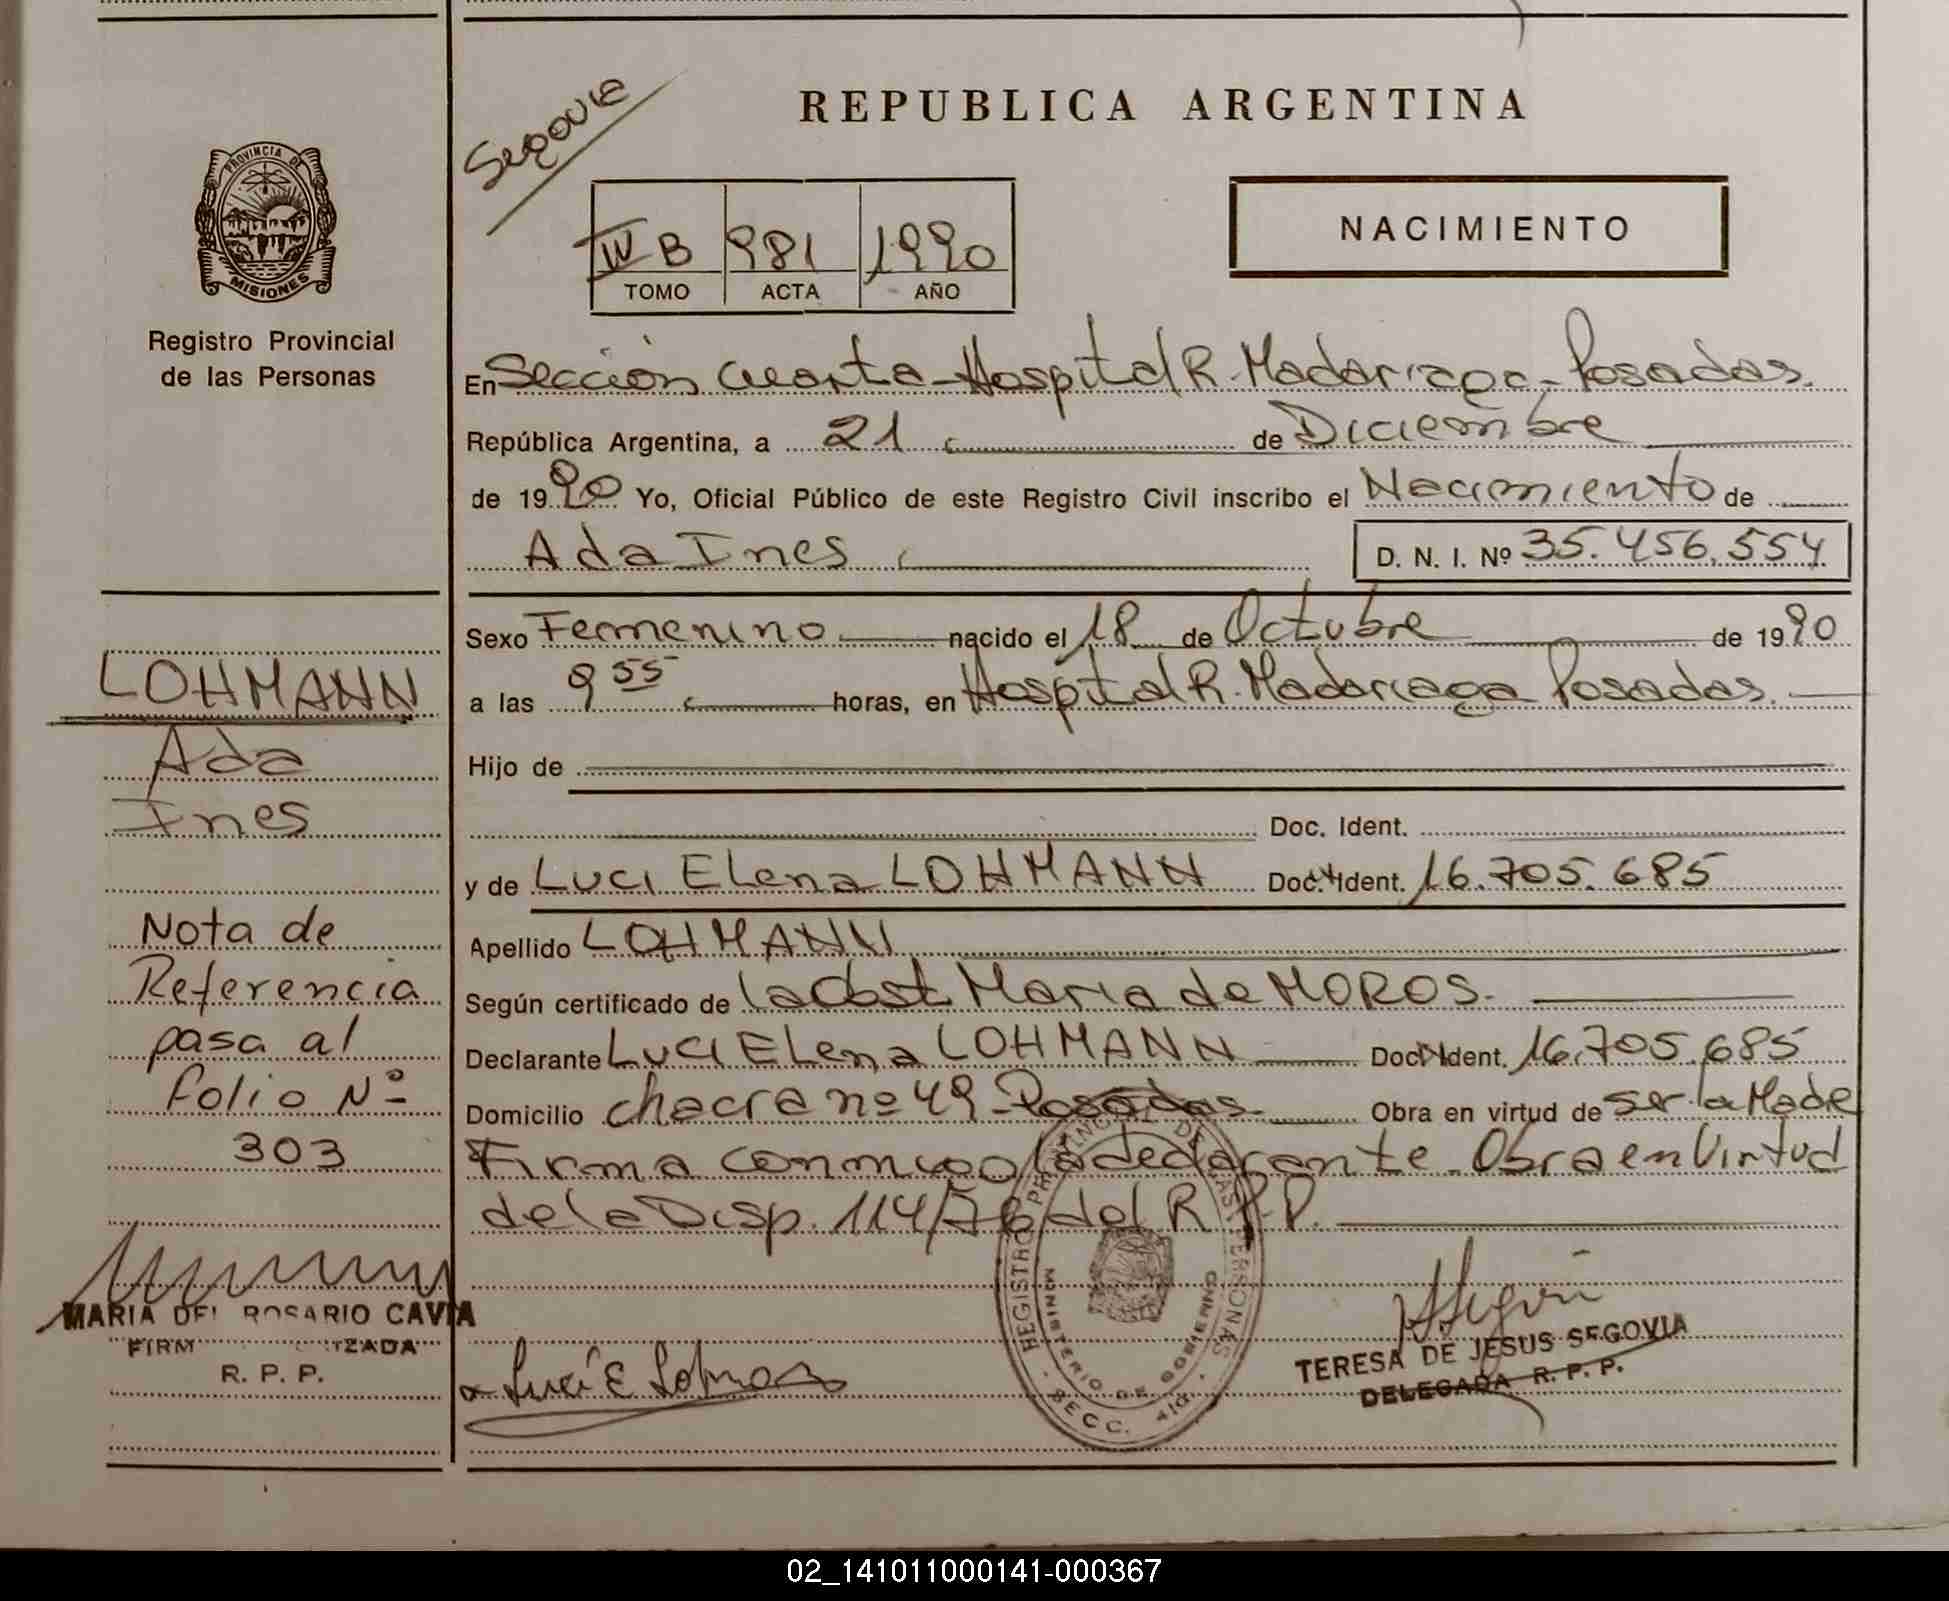 Segovia
REPUBLICA ARGENTINA
PROVINCIA DE
MISIONES
Registro Provincial
de las Personas
IV B 981 1990
TOMO ACTA AÑO
NACIMIENTO
En Sección Cuarta - Hospital R. Madariaga - Posadas.
República Argentina, a 21 de Diciembre
de 1990 Yo, Oficial Público de este Registro Civil inscribo el Nacimiento de
Ada Ines D. N. I. Nº 35.456.554
Sexo Femenino nacido el 18 de Octubre de 1990
a las 9 55 horas, en Hospital R. Madariaga Posadas.
Hijo de
Doc. Ident.
y de Luci Elena LOHMANN Doc. Ident. 16.705.685
Apellido LOHMANN
Según certificado de la Obst Maria de MOROS.
Declarante Luci Elena LOHMANN Doc. Ident. 16.705.685
Domicilio chacra nº 49 - Posadas. Obra en virtud de ser la Madre
Firma conmigo la declarante - Obra en Virtud
de la Disp. 114/76 del R.P.P.
LOHMANN
Ada
Ines
Nota de
Referencia
pasa al
Folio Nº
303
MARIA DEL ROSARIO CAVIA
R. P. P.
Luci E Lohmann
REGISTRO PROVINCIAL DE LAS PERSONAS
MINISTERIO DE GOBIERNO
SECC. 4ta.
TERESA DE JESUS SEGOVIA
DELEGADA R. P. P.
02_141011000141-000367